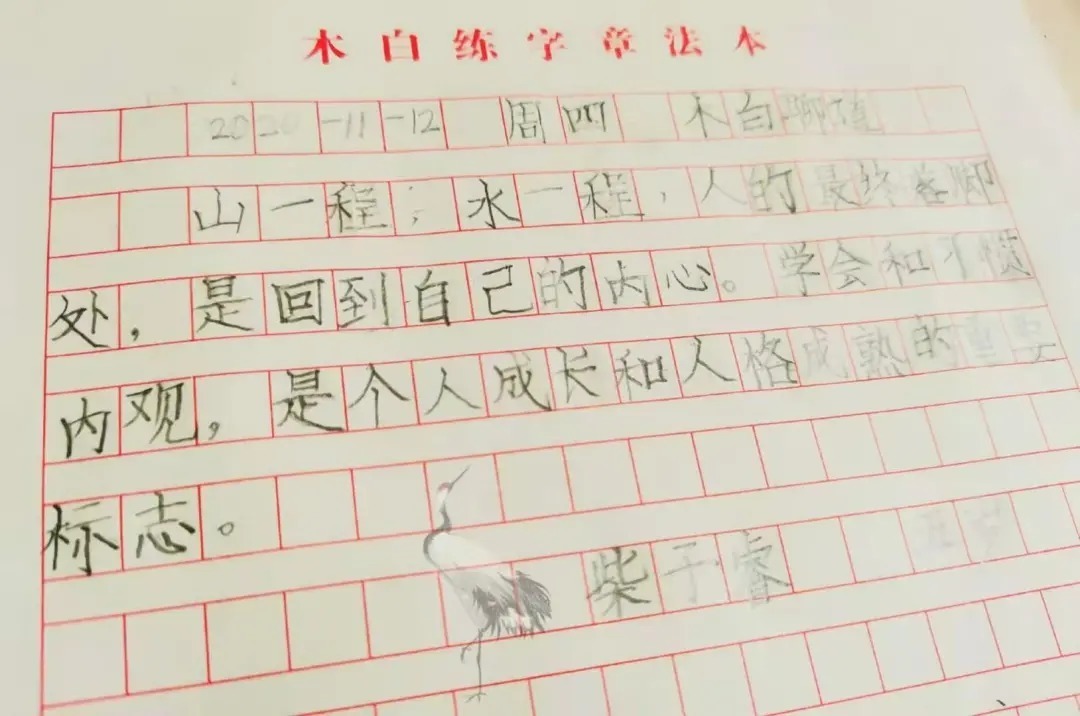 木白练字章法本
2020-11-12 周四 木白聊值
山一程；水一程，人的最终落脚
处，是回到自己的内心。学会和习惯
内观，是个人成长和人格成熟的重要
标志。
柴子睿